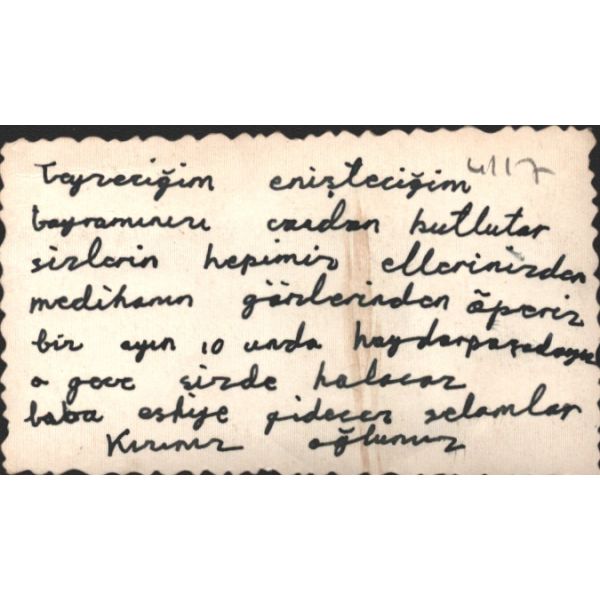 teyzeciğim enişteciğim 4117
bayramınızı candan kutlular
sizlerin hepimiz ellerinizden
medihanın gözlerinden öperiz
bir ayın 10 unda haydarpaşadayız
o gece sizde kalacaz
baba eskiye gidecez selamlar
Kızınız oğlunuz